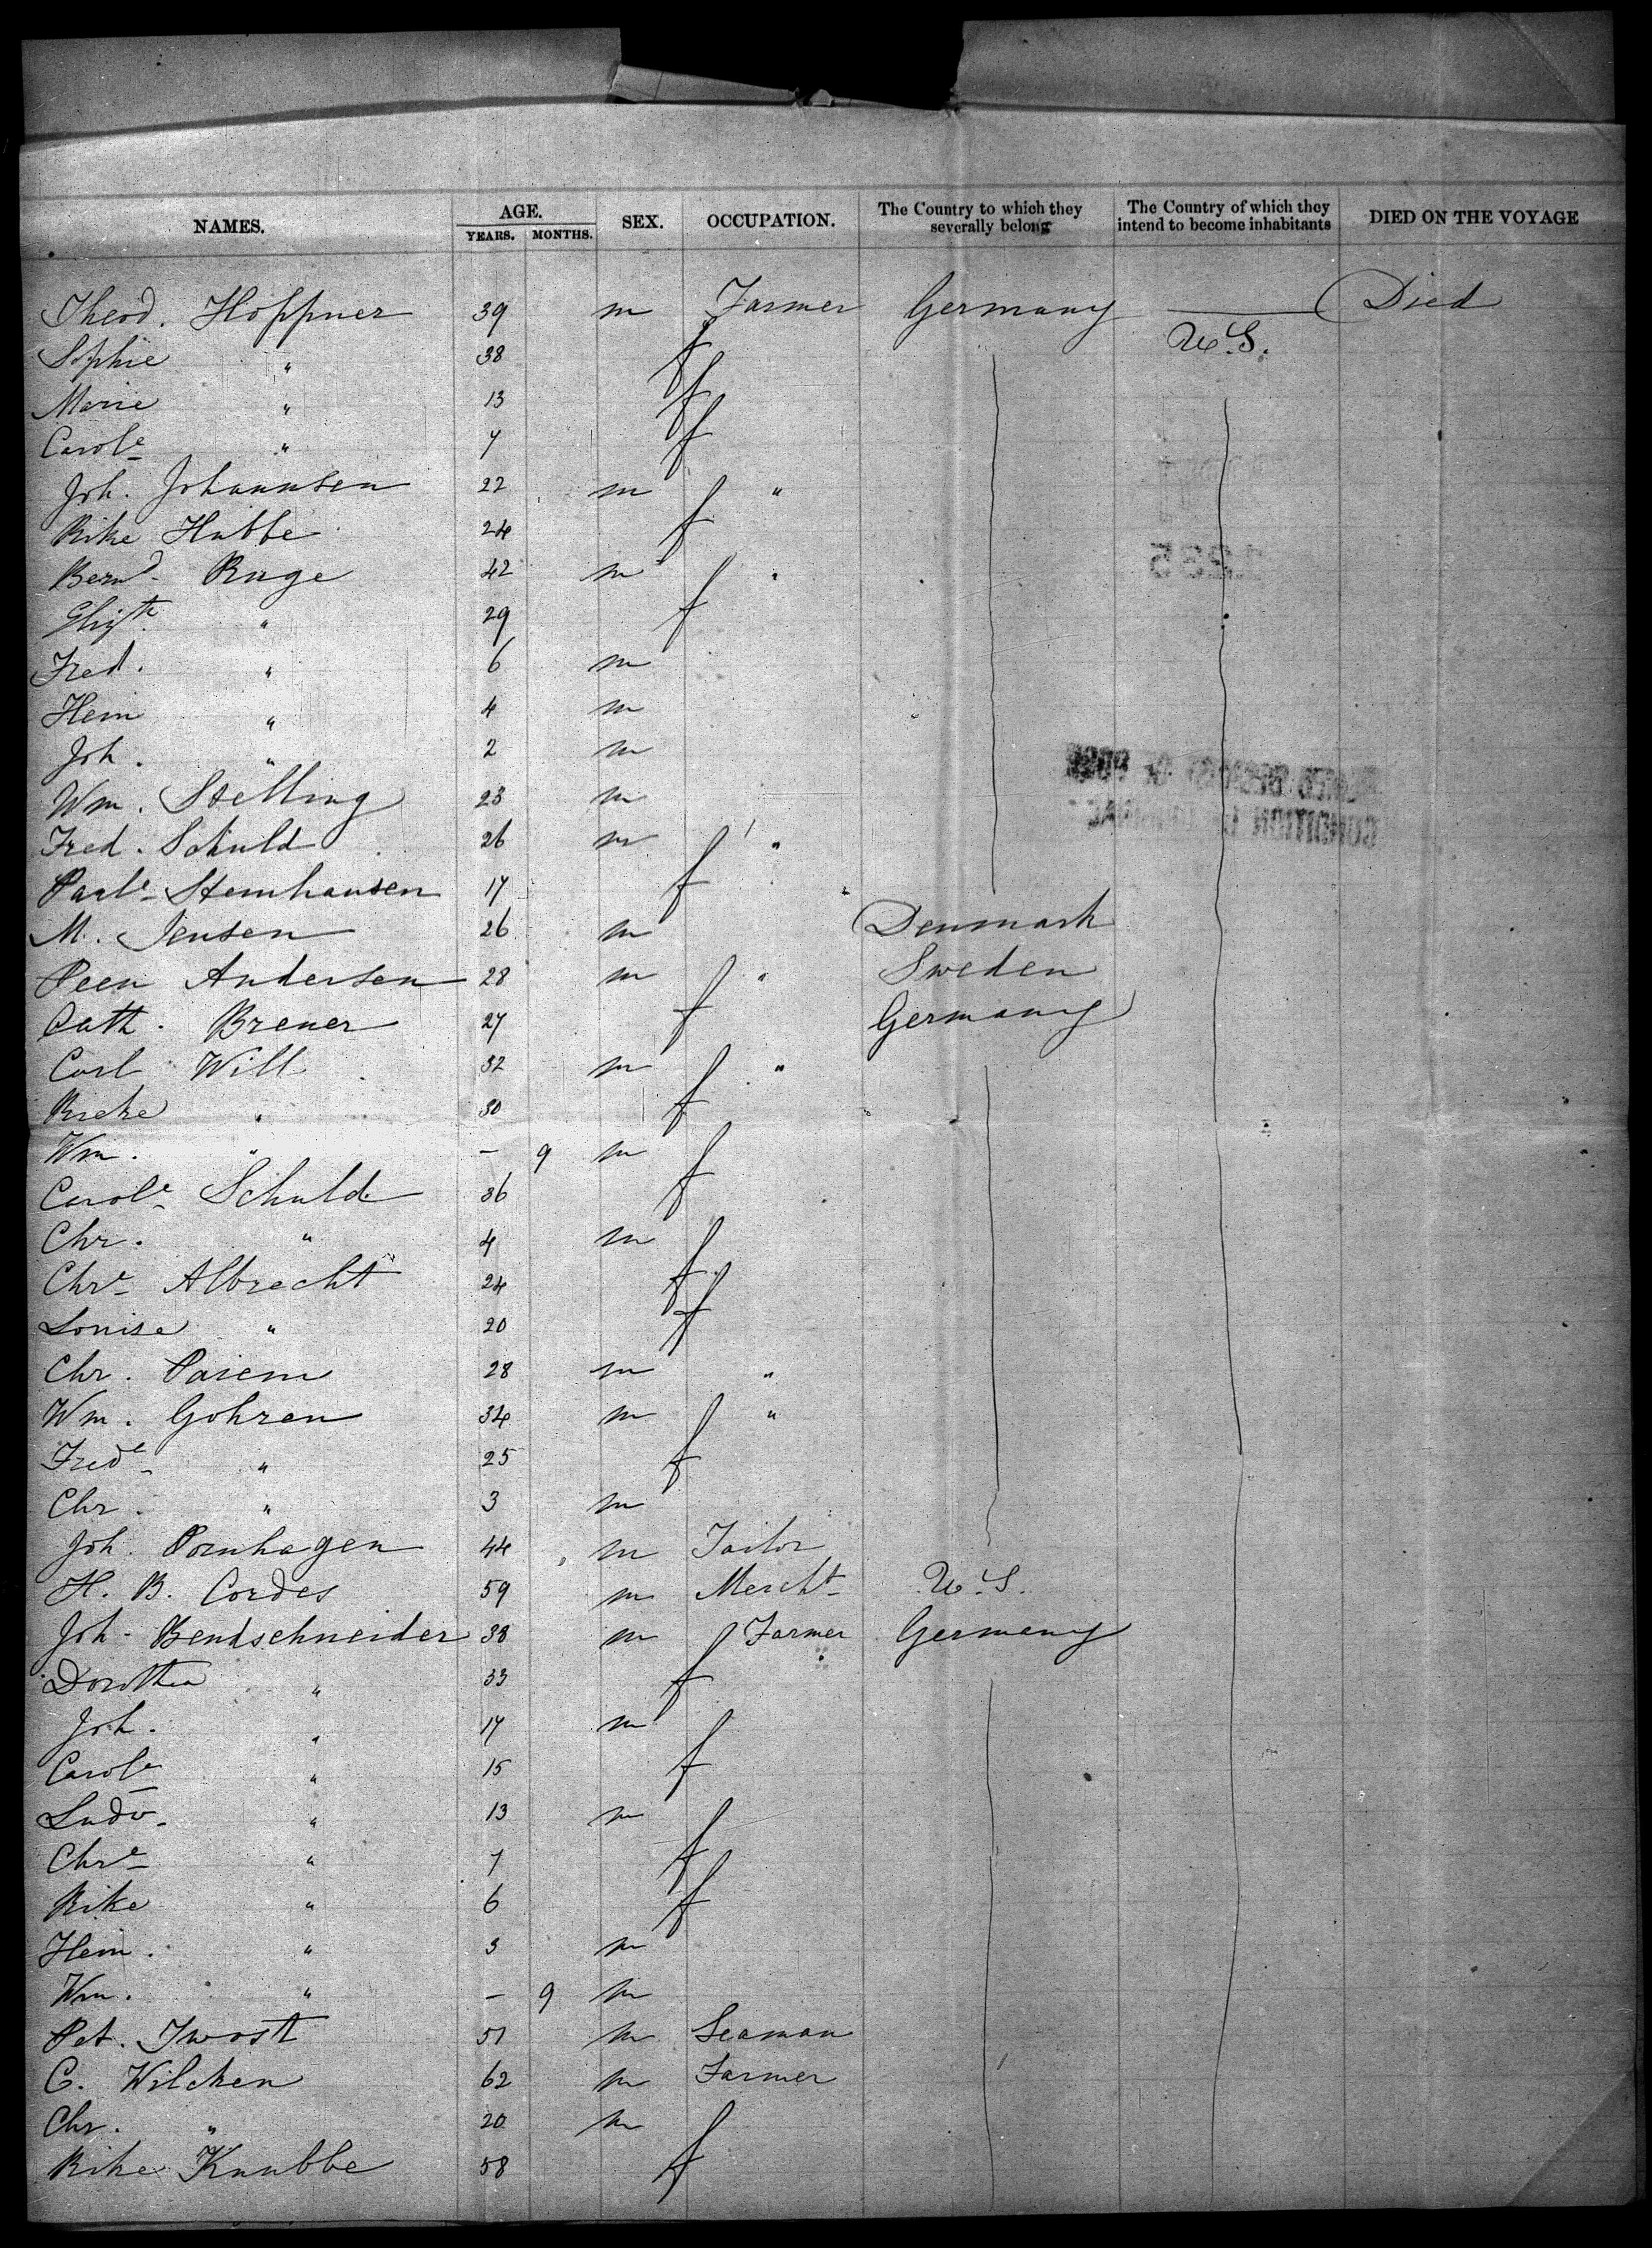 NAMES. AGE. YEARS. MONTHS. SEX. OCCUPATION. The Country to which they severally belong The Country of which they intend to become inhabitants DIED ON THE VOYAGE
Theod. Hoppner 39 m Farmer Germany — Died
Sophie " 38 f U.S.
Marie " 13 f
Carole " 7 f
Joh. Johannsen 22 m "
Rike Hubbe 24 f
Bernd. Ruge 42 m "
Elizth " 29 f
Fred. " 6 m
Hein " 4 m
Joh. " 2 m
Wm. Stelling 23 m
Fred. Schuld 26 m "
Paule Stemhausen 17 f
M. Jensen 26 m Denmark
Peen Andersen 28 m " Sweden
Cath. Brener 27 f Germany
Carl Will 32 m "
Rieke " 30 f
Wm. " – 9 m
Carole Schuld 36 f
Chr. " 4 m
Chre Albrecht 24 f
Louise " 20 f
Chr. Pasem 28 m "
Wm. Gohren 34 m "
Frede " 25 f
Chr. " 3 m
Joh. Pornhagen 44 m Tailor
H. B. Cordes 59 m Mercht U.S.
Joh. Bendschneider 38 m Farmer Germany
Dorothea " 33 f
Joh. " 17 m
Carole " 15 f
Ludv. " 13 m
Chre " 7 f
Rike " 6 f
Hein. " 3 m
Wm. " – 9 m
Pet. Twost 51 m Seaman
C. Wilcken 62 m Farmer
Chr. " 20 m
Rike Knubbe 58 f